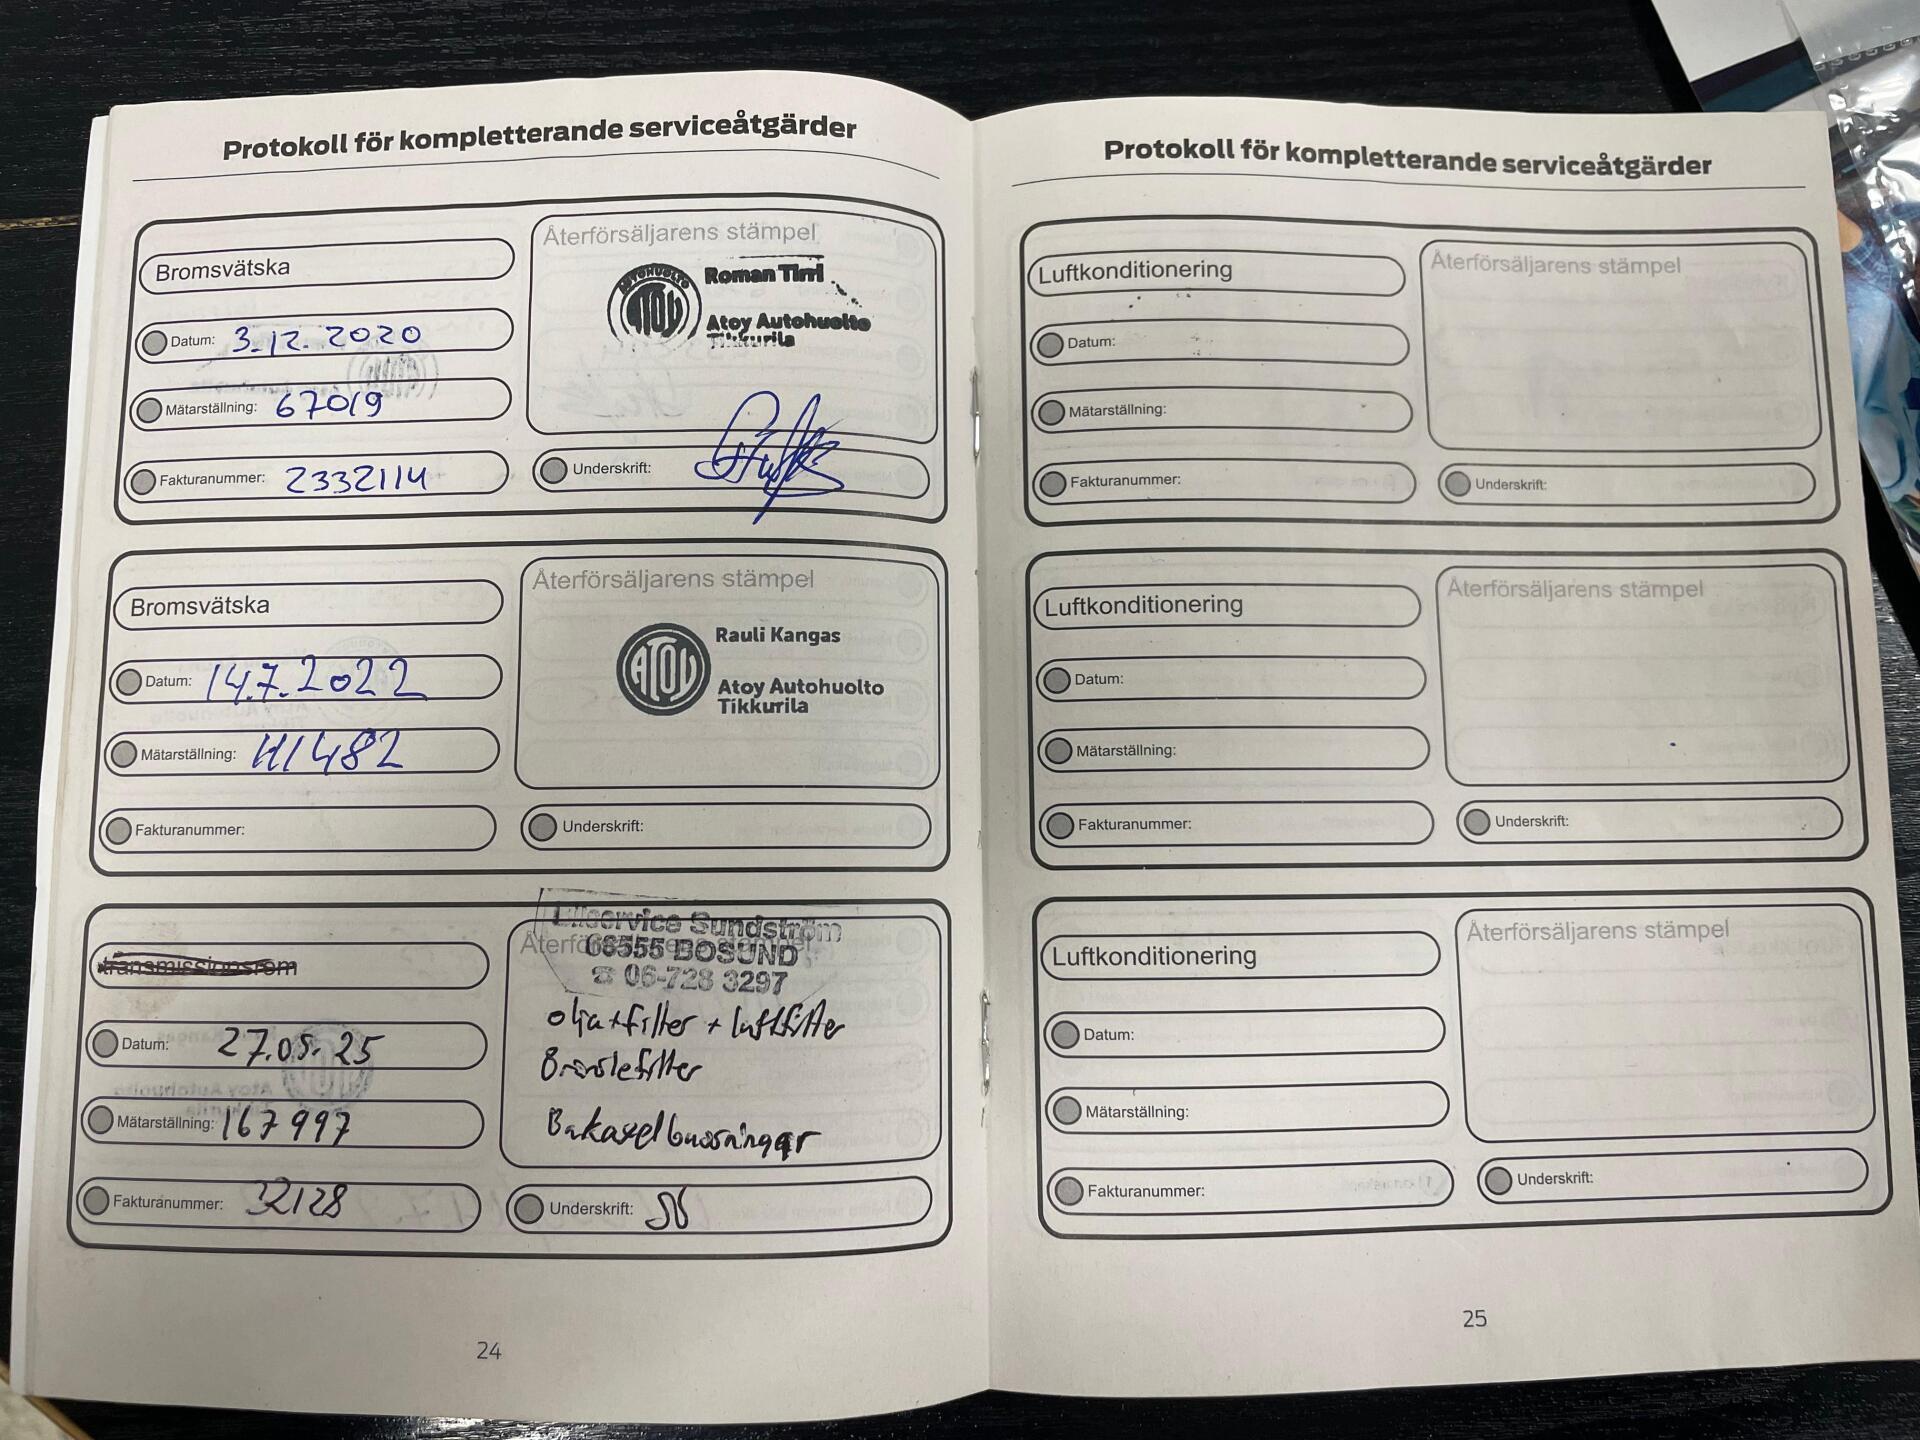 Protokoll för kompletterande serviceåtgärder
Bromsvätska
Datum: 3.12.2020
Mätarställning: 67019
Fakturanummer: 2332114
Återförsäljarens stämpel
AUTOHUOLTO
ATOY
Roman Tirri
Atoy Autohuolto
Tikkurila
Underskrift:
Bromsvätska
Datum: 14.7.2022
Mätarställning: 111482
Fakturanummer:
Återförsäljarens stämpel
ATOY
Rauli Kangas
Atoy Autohuolto
Tikkurila
Underskrift:
transmissionsrem
Datum: 27.05.25
Mätarställning: 167997
Fakturanummer: 32128
Återförsäljarens stämpel
Sundström
68555 BOSUND
☎ 06-728 3297
olja+filter + luftfilter
Bränslefilter
Bakaxelbussningar
Underskrift:
24
Protokoll för kompletterande serviceåtgärder
Luftkonditionering
Datum:
Mätarställning:
Fakturanummer:
Återförsäljarens stämpel
Underskrift:
Luftkonditionering
Datum:
Mätarställning:
Fakturanummer:
Återförsäljarens stämpel
Underskrift:
Luftkonditionering
Datum:
Mätarställning:
Fakturanummer:
Återförsäljarens stämpel
Underskrift:
25